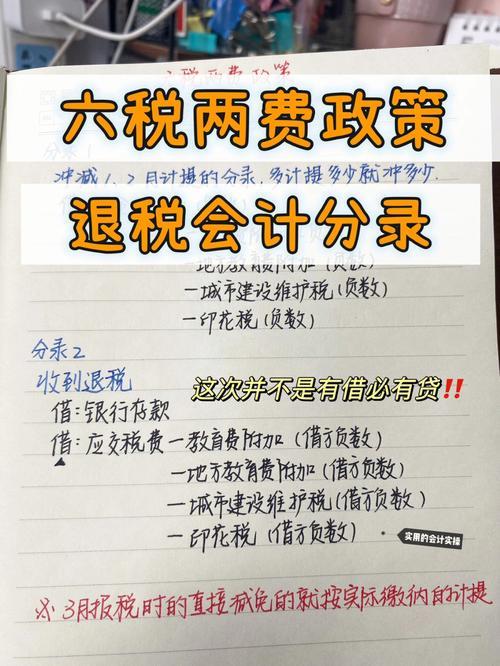 六税两费政策
六税两费政策
分录1
冲减1、2月计提的分录,多计提多少就冲多少.
退税会计分录
一地方教育费附加(负数)
一城市建设维护税(负数)
一印花税(负数)
分录2
收到退税
这次并不是有借必有贷!!
借:银行存款
借:应交税费一教育费附加(借方负数)
一地方教育费附加(借方负数)
一城市建设维护税(借方负数)
一印花税(借方负数)
实用的会计实操
※3月报税时的直接减免的就按实际缴纳的计提